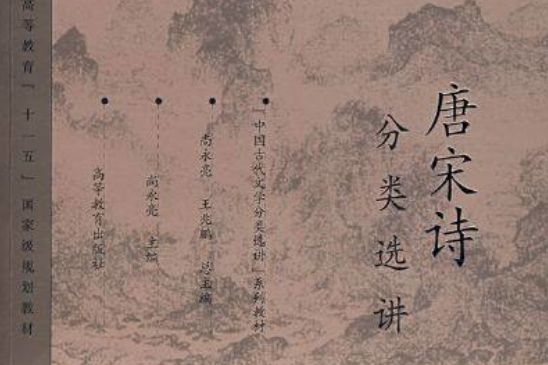 唐宋诗
分类选讲
「中国古代文学分类选讲」系列教材
尚永亮 王兆鹏 总主编
尚永亮 主编
高等教育出版社
高等教育「十一五」国家级规划教材